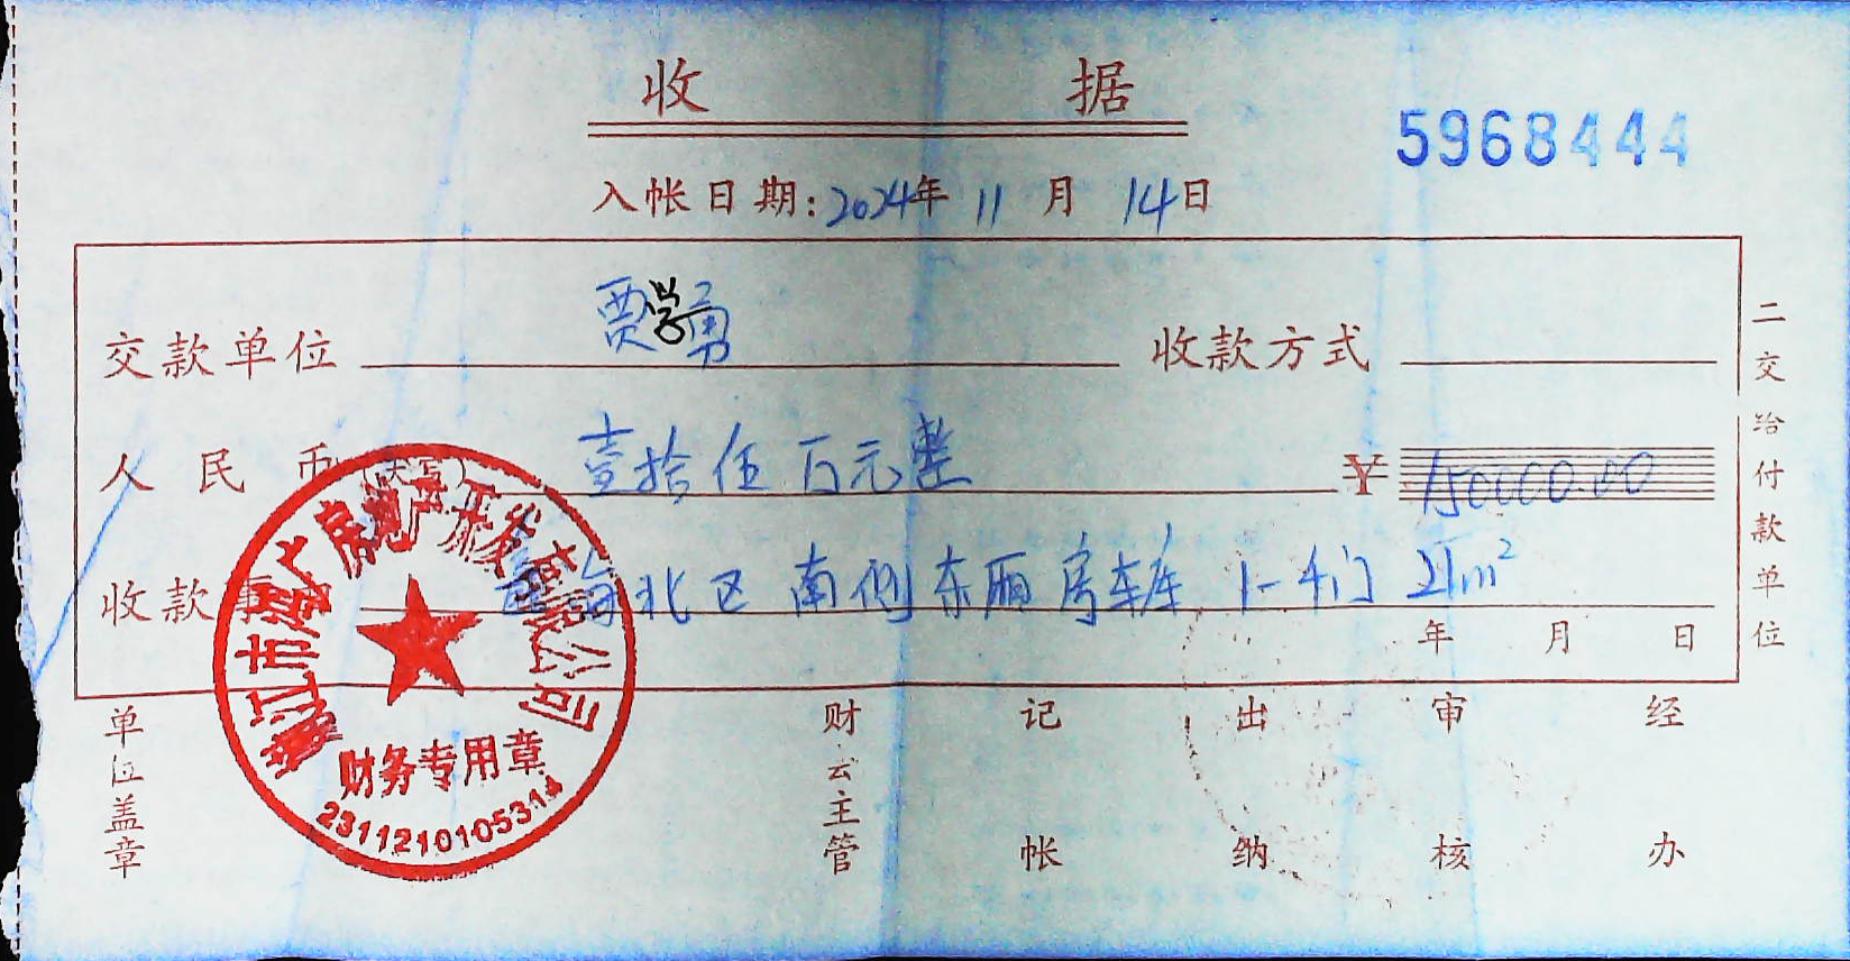 收 据
5968444
入帐日期:2024年 11 月 14日
交款单位 贾学勇 收款方式
人民币(大写) 壹拾伍万元整 ¥ 150000.00
收款事 北区 南侧东厢房车库 1-4门 21m²
年 月 日
二交给付款单位
单位盖章 财会主管 记帐 出纳 审核 经办
江市 房地产开发有限公司
财务专用章
2311210105314